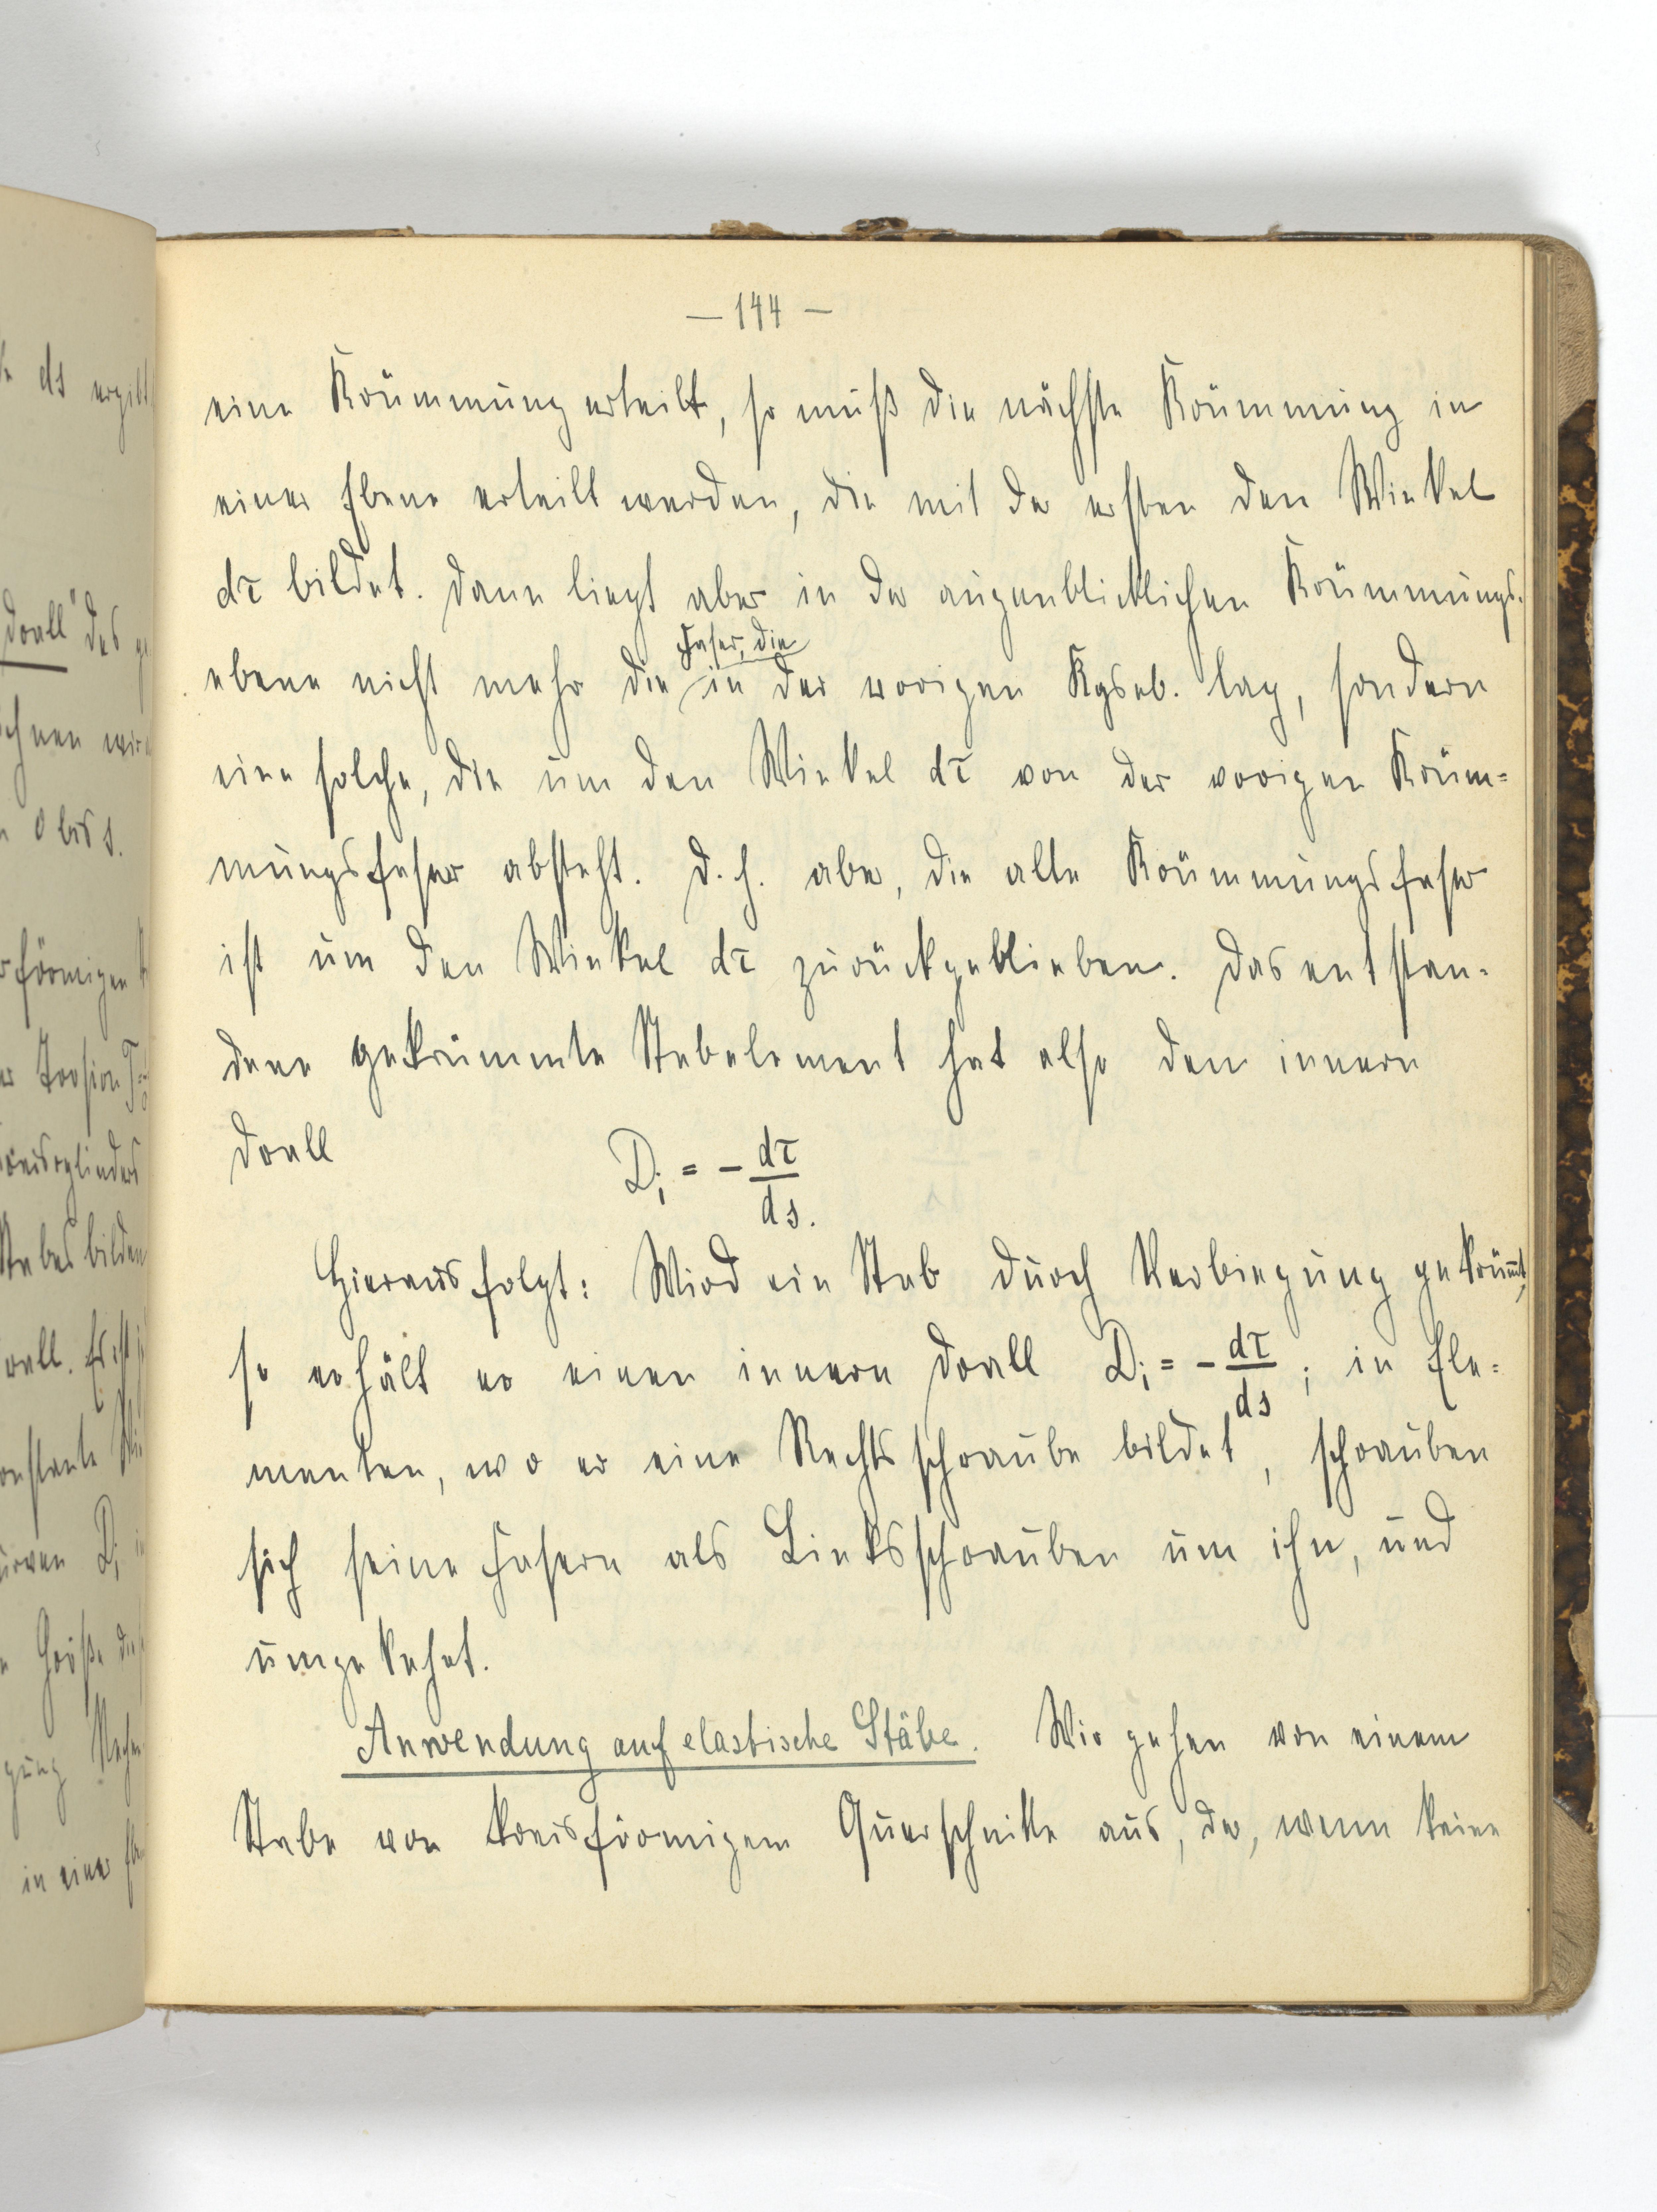 — 144 —
eine Krümmung erteilt, so muß die nächste Krümmung in
einer Ebene erteilt werden, die mit der ersten den Winkel
dτ bildet. Dann liegt aber in der augenblicklichen Krümmungs-
Faser, die
ebene nicht mehr die in der vorigen Kgseb. lag, sondern
eine solche, die um den Winkel dτ von der vorigen Krüm=
mungsfaser absteht. D. h. aber, die alte Krümmungsfaser
ist um den Winkel dτ zurückgeblieben. Das entstan-
dene gekrümmte Stabelement hat also den innern
Drall D_i = - dτ/ds.
Hieraus folgt: Wird ein Stab durch Verbiegung gekrümt,
so erhält er einen innern Drall D_i = - dτ/ds; in Ele=
menten, wo er eine Rechtsschraube bildet, schrauben
sich seine Fasern als Linksschrauben um ihn, und
umgekehrt.
Anwendung auf elastische Stäbe. Wir gehen von einem
Stabe von kreisförmigem Querschnitte aus, der, wenn keine
ds ergibt
Drall" des
chnen wir
0 bis s.
förmigen
Torsion
Kreiszylinders
Stabes bilden
Drall. Es ist
konstante
Kurven D_i
Größe
in einer